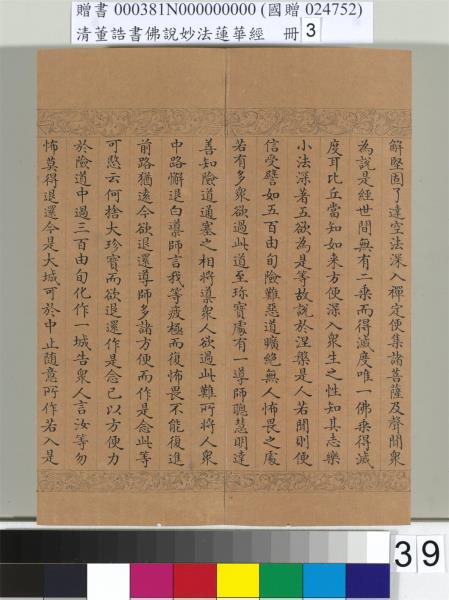 贈書 000381N000000000 (國贈 024752)
清董誥書佛說妙法蓮華經 冊 3
解堅固了達空法深入禪定便集諸菩薩及聲聞眾
為說是經世間無有二乘而得滅度唯一佛乘得滅
度耳比丘當知如來方便深入眾生之性知其志樂
小法深著五欲為是等故說於涅槃是人若聞則便
信受譬如五百由旬險難惡道曠絕無人怖畏之處
若有多眾欲過此道至珍寶處有一導師聰慧明達
善知險道通塞之相將導眾人欲過此難所將人眾
中路懈退白導師言我等疲極而復怖畏不能復進
前路猶遠今欲退還導師多諸方便而作是念此等
可愍云何捨大珍寶而欲退還作是念已以方便力
於險道中過三百由旬化作一城告眾人言汝等勿
怖莫得退還今是大城可於中止隨意所作若入是
39